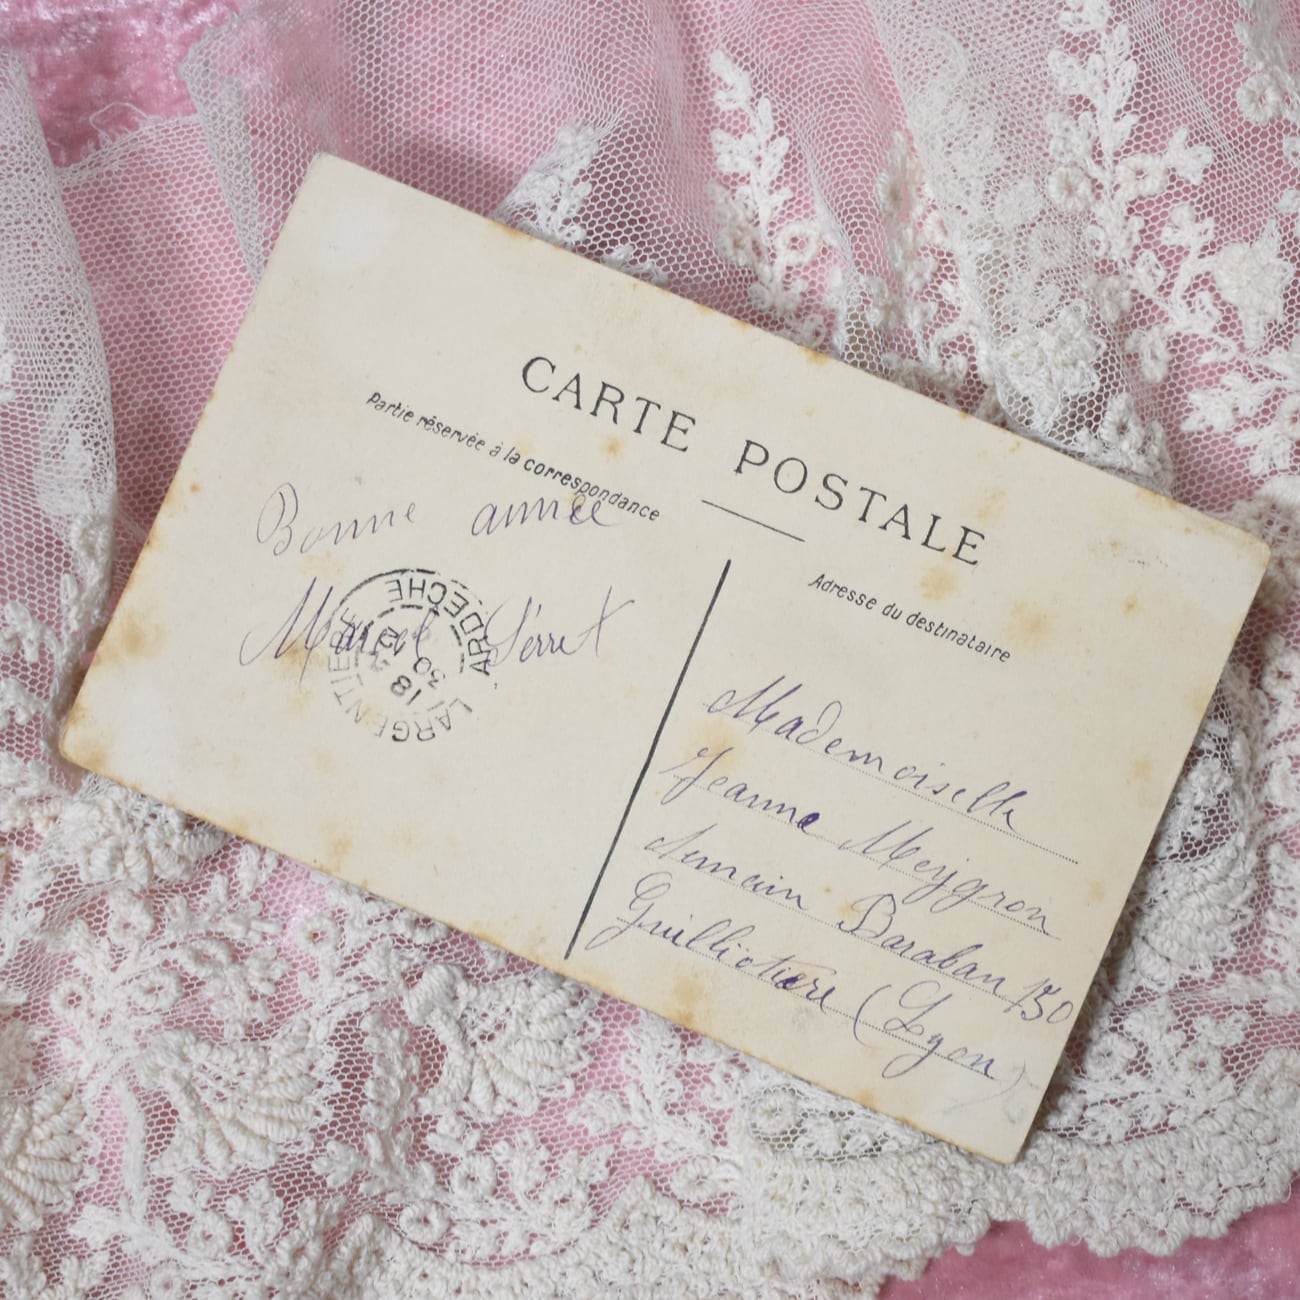 CARTE POSTALE
Partie réservée à la correspondance
Bonne année
Marcel
LARGENTIERE
ARDECHE
18
30 12
Adresse du destinataire
Mademoiselle
Jeanne Meygron
Baraban 150
Guillotière (Lyon)